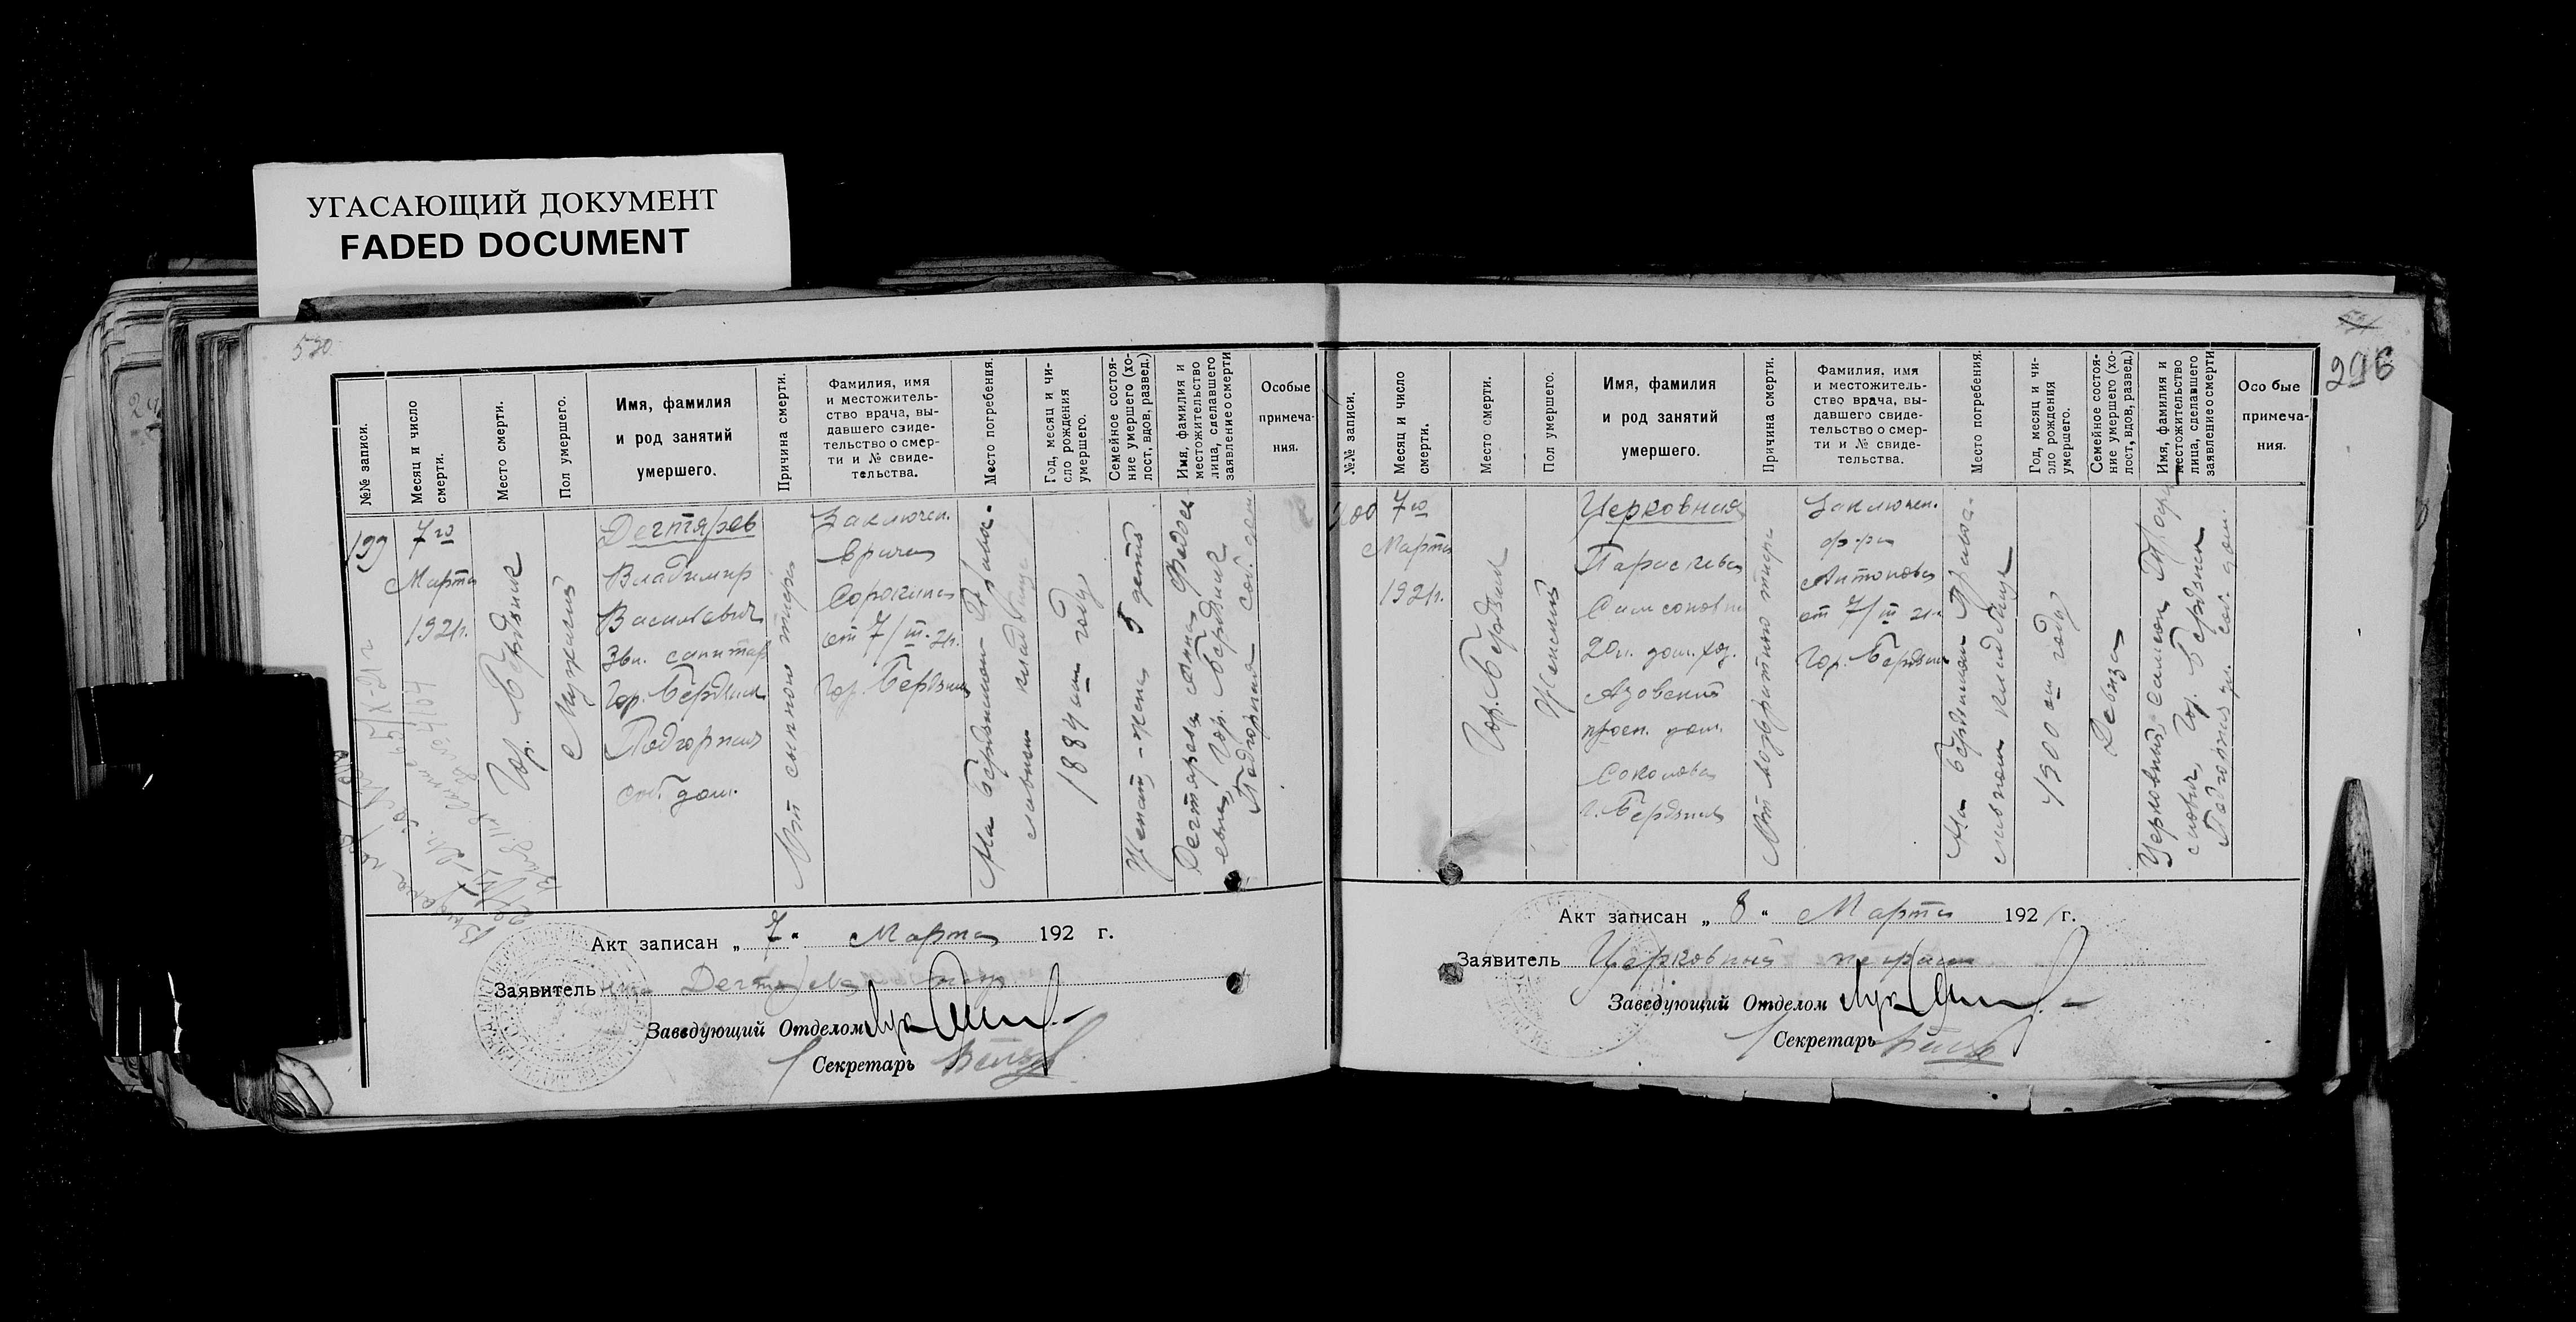 УГАСАЮЩИЙ ДОКУМЕНТ
FADED DOCUMENT
530
№№ записи.
Месяц и число
смерти.
Место смерти.
Пол умершего.
Имя, фамилия
и род занятий
умершего.
Причина смерти.
Фамилия, имя
и местожитель-
ство врача, вы-
давшего свиде-
тельство о смер-
ти и № свиде-
тельства.
Место погребения.
Год, месяц и чи-
сло рождения
умершего.
Семейное состоя-
ние умершего (хо-
лост, вдов, развед.)
Имя, фамилия и
местожительство
лица, сделавшего
заявление о смерти
Особые
примеча-
ния.
199
7го
Марта
1921г.
Гор. Бердянск
Мужской
Дегтярев
Владимир
Васильевич
Зви. санитар
Гор. Бердянск
Подгорная
соб. дом.
От сыпного тифа
Заключен.
врача
Сорокина
от 7/III-21г.
Гор. Бердянск
На Бердянском Правос-
лавном кладбище
1884 ом году
Женат - жена 5 детей
Дегтярева Анна Федось
евна, Гор. Бердянск
Подгорная соб. дом.
Акт записан „ 7 " Марта 192 г.
Заявитель Дегтярева
Заведующий Отделом
Секретарь
296
№№ записи.
Месяц и число
смерти.
Место смерти.
Пол умершего.
Имя, фамилия
и род занятий
умершего.
Причина смерти.
Фамилия, имя
и местожитель-
ство врача, вы-
давшего свиде-
тельство о смер-
ти и № свиде-
тельства.
Место погребения.
Год, месяц и чи-
сло рождения
умершего.
Семейное состоя-
ние умершего (хо-
лост, вдов, развед.)
Имя, фамилия и
местожительство
лица, сделавшего
заявление о смерти
Особые
примеча-
ния.
200
7го
Марта
1921г.
Гор. Бердянск
Женский
Церковная
Параскева
Самсоновна
20л. дом. хоз.
Азовский
просп. дом.
Соколова
г. Бердянск
От возвратного тифа
Заключен.
д-ра
Антонова
от 7/III 21г.
Гор. Бердянск
На Бердянском Правос-
лавном кладбище
1900 ом году
Девица
Церковный Самсон
Гор. Бердянск
Подгорная ул. соб. дом.
Акт записан „ 8 " Марта 1921 г.
Заявитель Церковный неграм
Заведующий Отделом
Секретарь